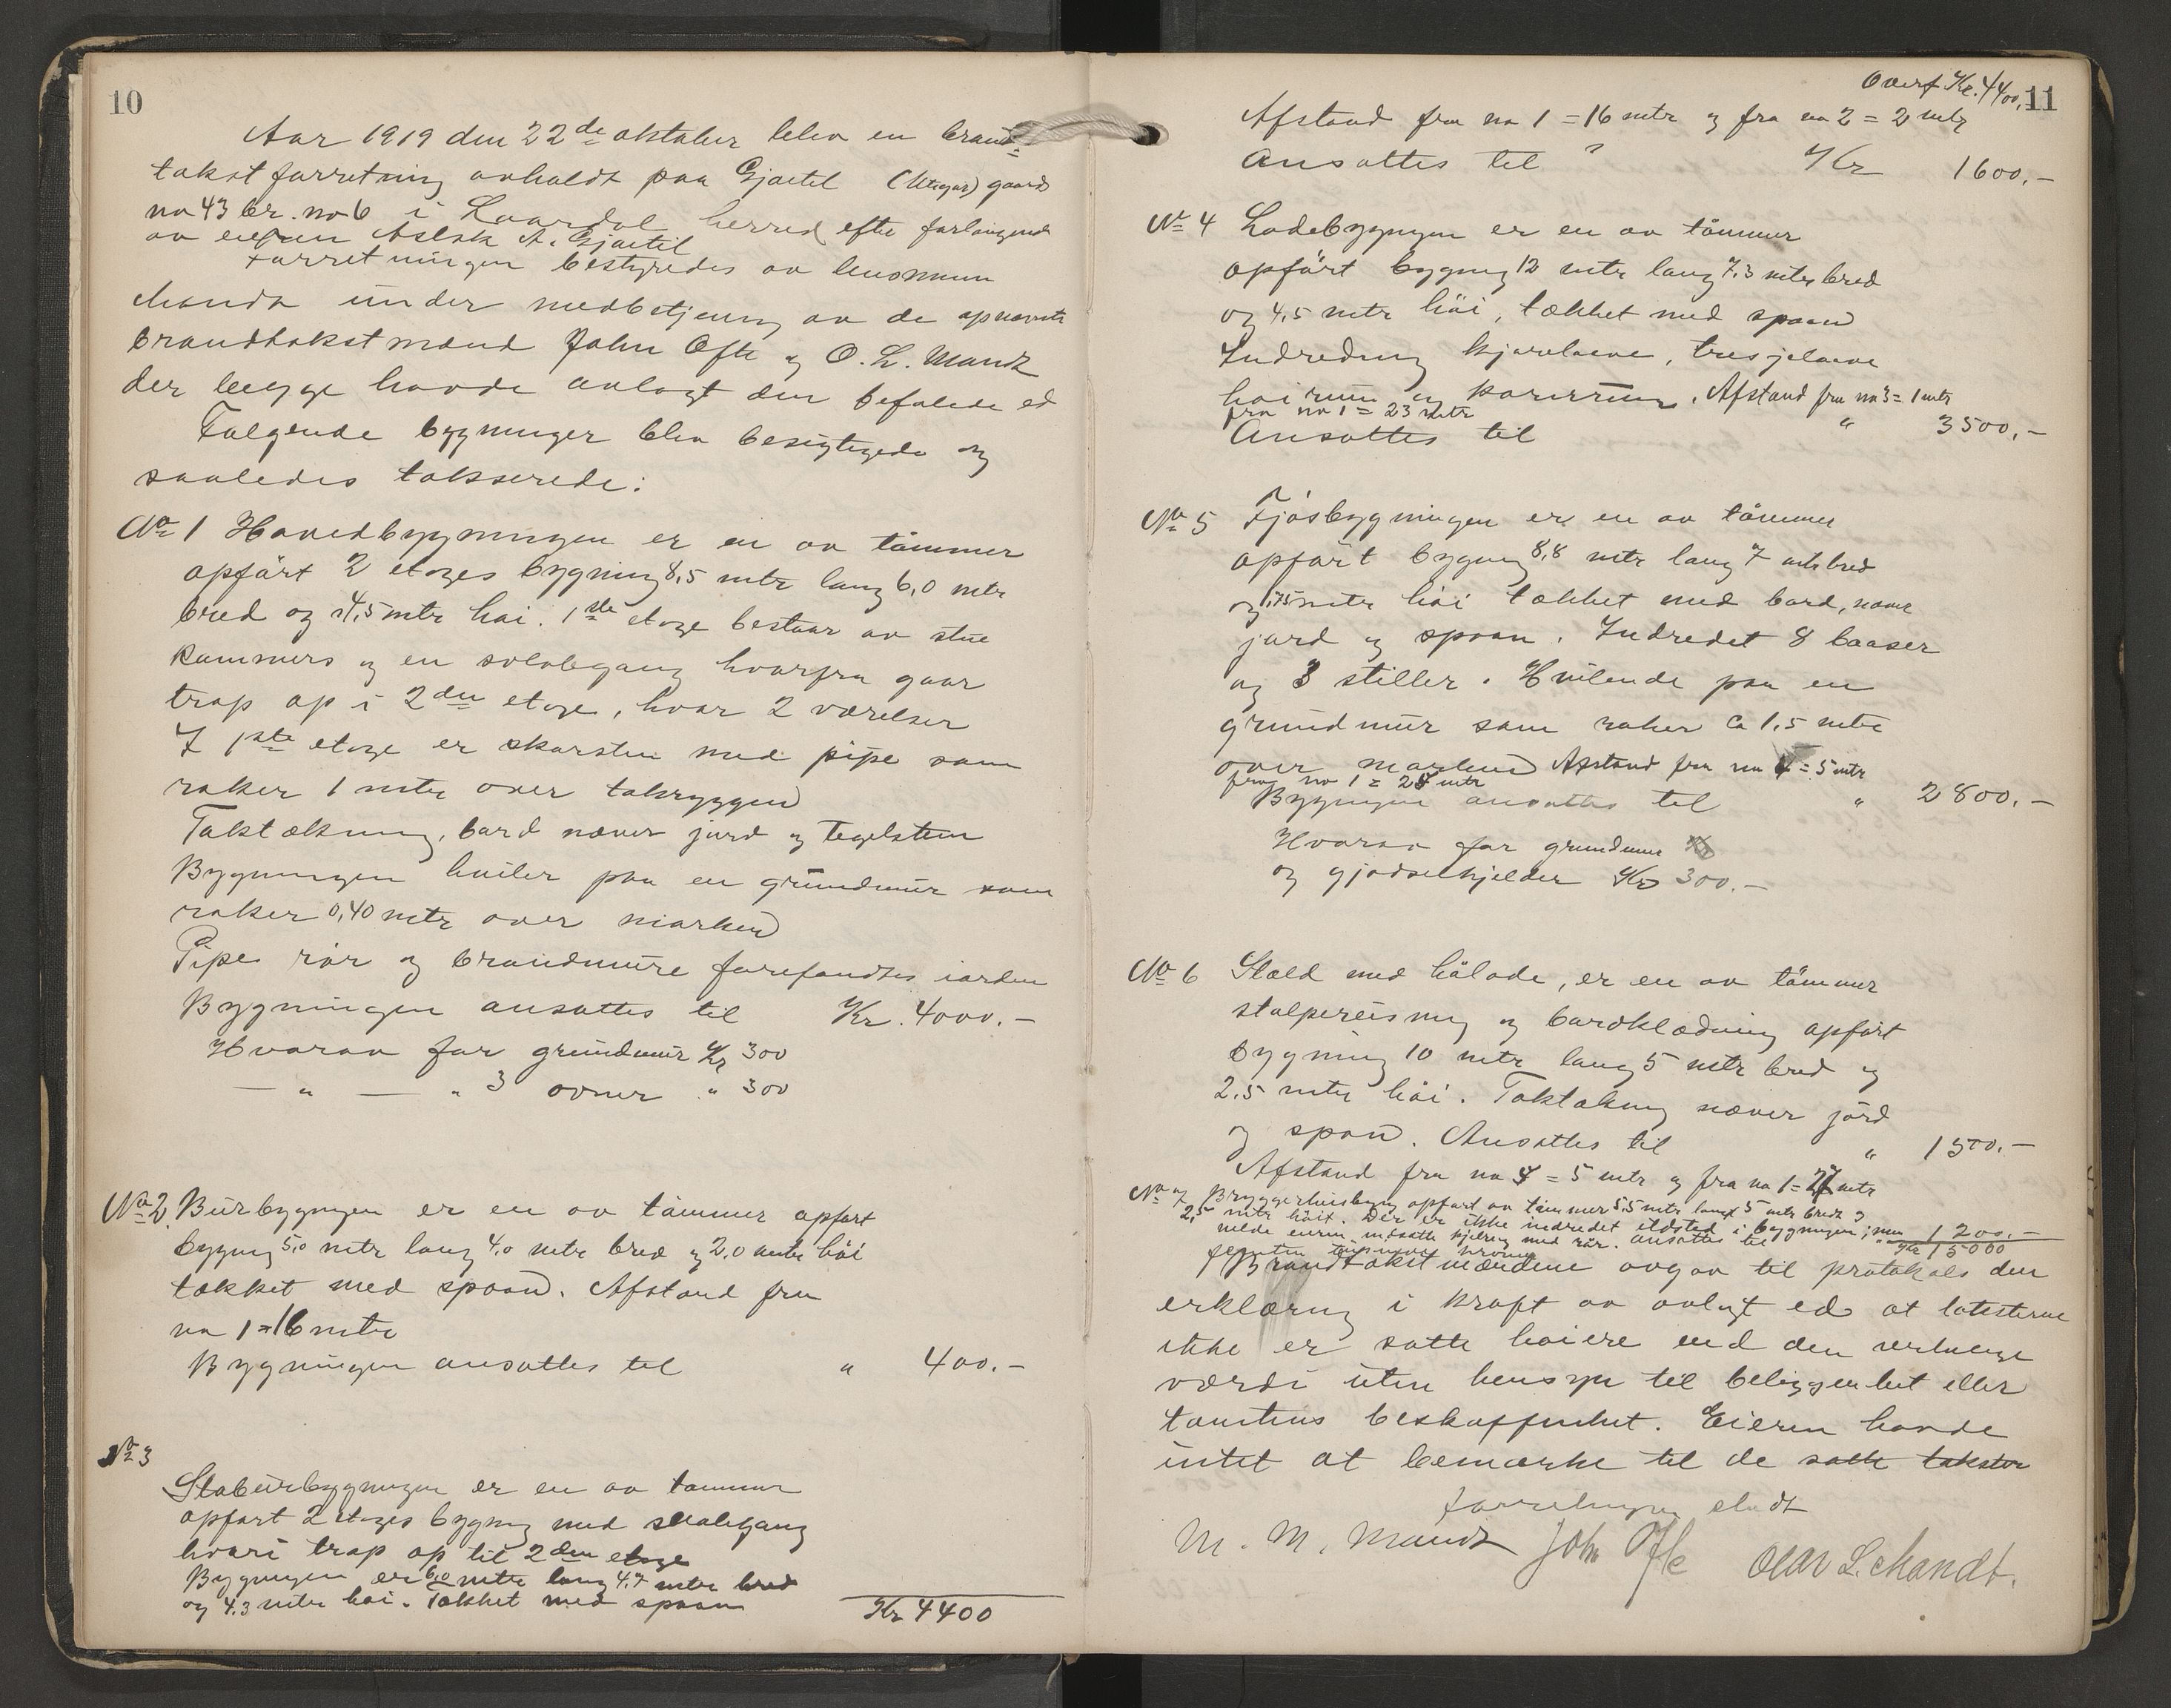 10
Aar 1919 den 22de oktober blev en brand-
takstforretning avholdt paa Gjøitil gaards
no 43 br. no 6 i Laardal herred efter forlangende
av eieren Aslak A. Gjøitil
Forretningen bestyredes av lensmann
Mandt under medbetjening av de opnævnte
brandtakstmænd John Ofte og O. L. Mandt
der begge havde avlagt den befalede ed
Følgende bygninger blev besigtigede og
saaledes takserede:
No 1 Hovedbygningen er en av tömmer
opfört 2 etages bygning 8,5 mtr lang 6,0 mtr
bred og 4,5 mtr höi. 1ste etage bestaar av stue
kammers og en svalegang hvorfra gaar
trap op i 2den etage, hvor 2 værelser
I 1ste etage er skorsten med pipe som
raker 1 mtr over takryggen
Taktækning, bord næver jord og Tegelsten
Bygningen hviler paa en grundmur som
raker 0,40 mtr over marken
Pipe rör og brandmure forefandtes iorden
Bygningen ansattes til Kr. 4000.-
Hvorav for grundmur Kr 300
— " — " 3 ovner " 300
No 2. Burbygningen er en av tömmer opfört
bygning 5,0 mtr lang 4,0 mtr bred og 2,0 mtr höi
tækket med spaan. Afstand fra
no 1 = 16 mtr
Bygningen ansattes til " 400.-
No 3
Staburbygningen er en av tømmer
opført 2 etages bygning med svalegang
hvori trap op til 2den etage
Bygningen er 6,0 mtr lang 4,7 mtr bred
og 4,3 mtr høi. Tækket med spaan
Kr 4400
Overf Kr. 4400,
11
Afstand fra no 1 = 16 mtr og fra no 2 = 2 mtr
Ansattes til Kr 1600.-
No 4 Ladebygningen er en av tömmer
opfört bygning 12 mtr lang 7,3 mtr bred
og 4,5 mtr höi, tækket med spaan
Indredning kjørelaave, treskjelaave
höirum og kornrum. Afstand fra no 3 = 1 mtr
fra no 1 = 23 mtr
Ansattes til " 3500.-
No 5 Fjösbygningen er en av tömmer
opfört bygning 8,8 mtr lang 7 mtr bred
og 1,75 mtr höi tækket med bord, næver
jord og spaan. Indredet 8 baaser
og 3 stiller. Hvilende paa en
grundmur som raker ca 1,5 mtr
over marken Afstand fra no 4 = 5 mtr
fra no 1 = 28 mtr
Bygningen ansattes til " 2800.-
Hvorav for grundmur
og gjødselkjelder Kr 300.-
No 6 Stald med hölade, er en av tömmer
stolpereisning og bordklædning opfört
bygning 10 mtr lang 5 mtr bred og
2,5 mtr höi. Taktækning næver jord
og spaan. Ansattes til " 1500.-
Afstand fra no = 5 mtr og fra no 1 = 27 mtr
No 7 Bryggerhusbygning opført av tømmer 5,5 mtr langt 5 mtr bredt og
2,5 mtr höit. Der er ikke indredet ildsted i bygningen; men
indsatte kjelen med rör. Ansattes til " 1200.-
Kr 15000
Brandtakstmændene avgav til protokols den
erklæring i kraft av avlagt ed at taksterne
ikke er satte höiere end den virkelige
værdi uten hensyn til beliggenhet eller
tomtens beskaffenhet. Eieren havde
intet at bemærke til de satte takster
Forretningen sluttet
M. M. Mandt John Ofte Olav L. Mandt.